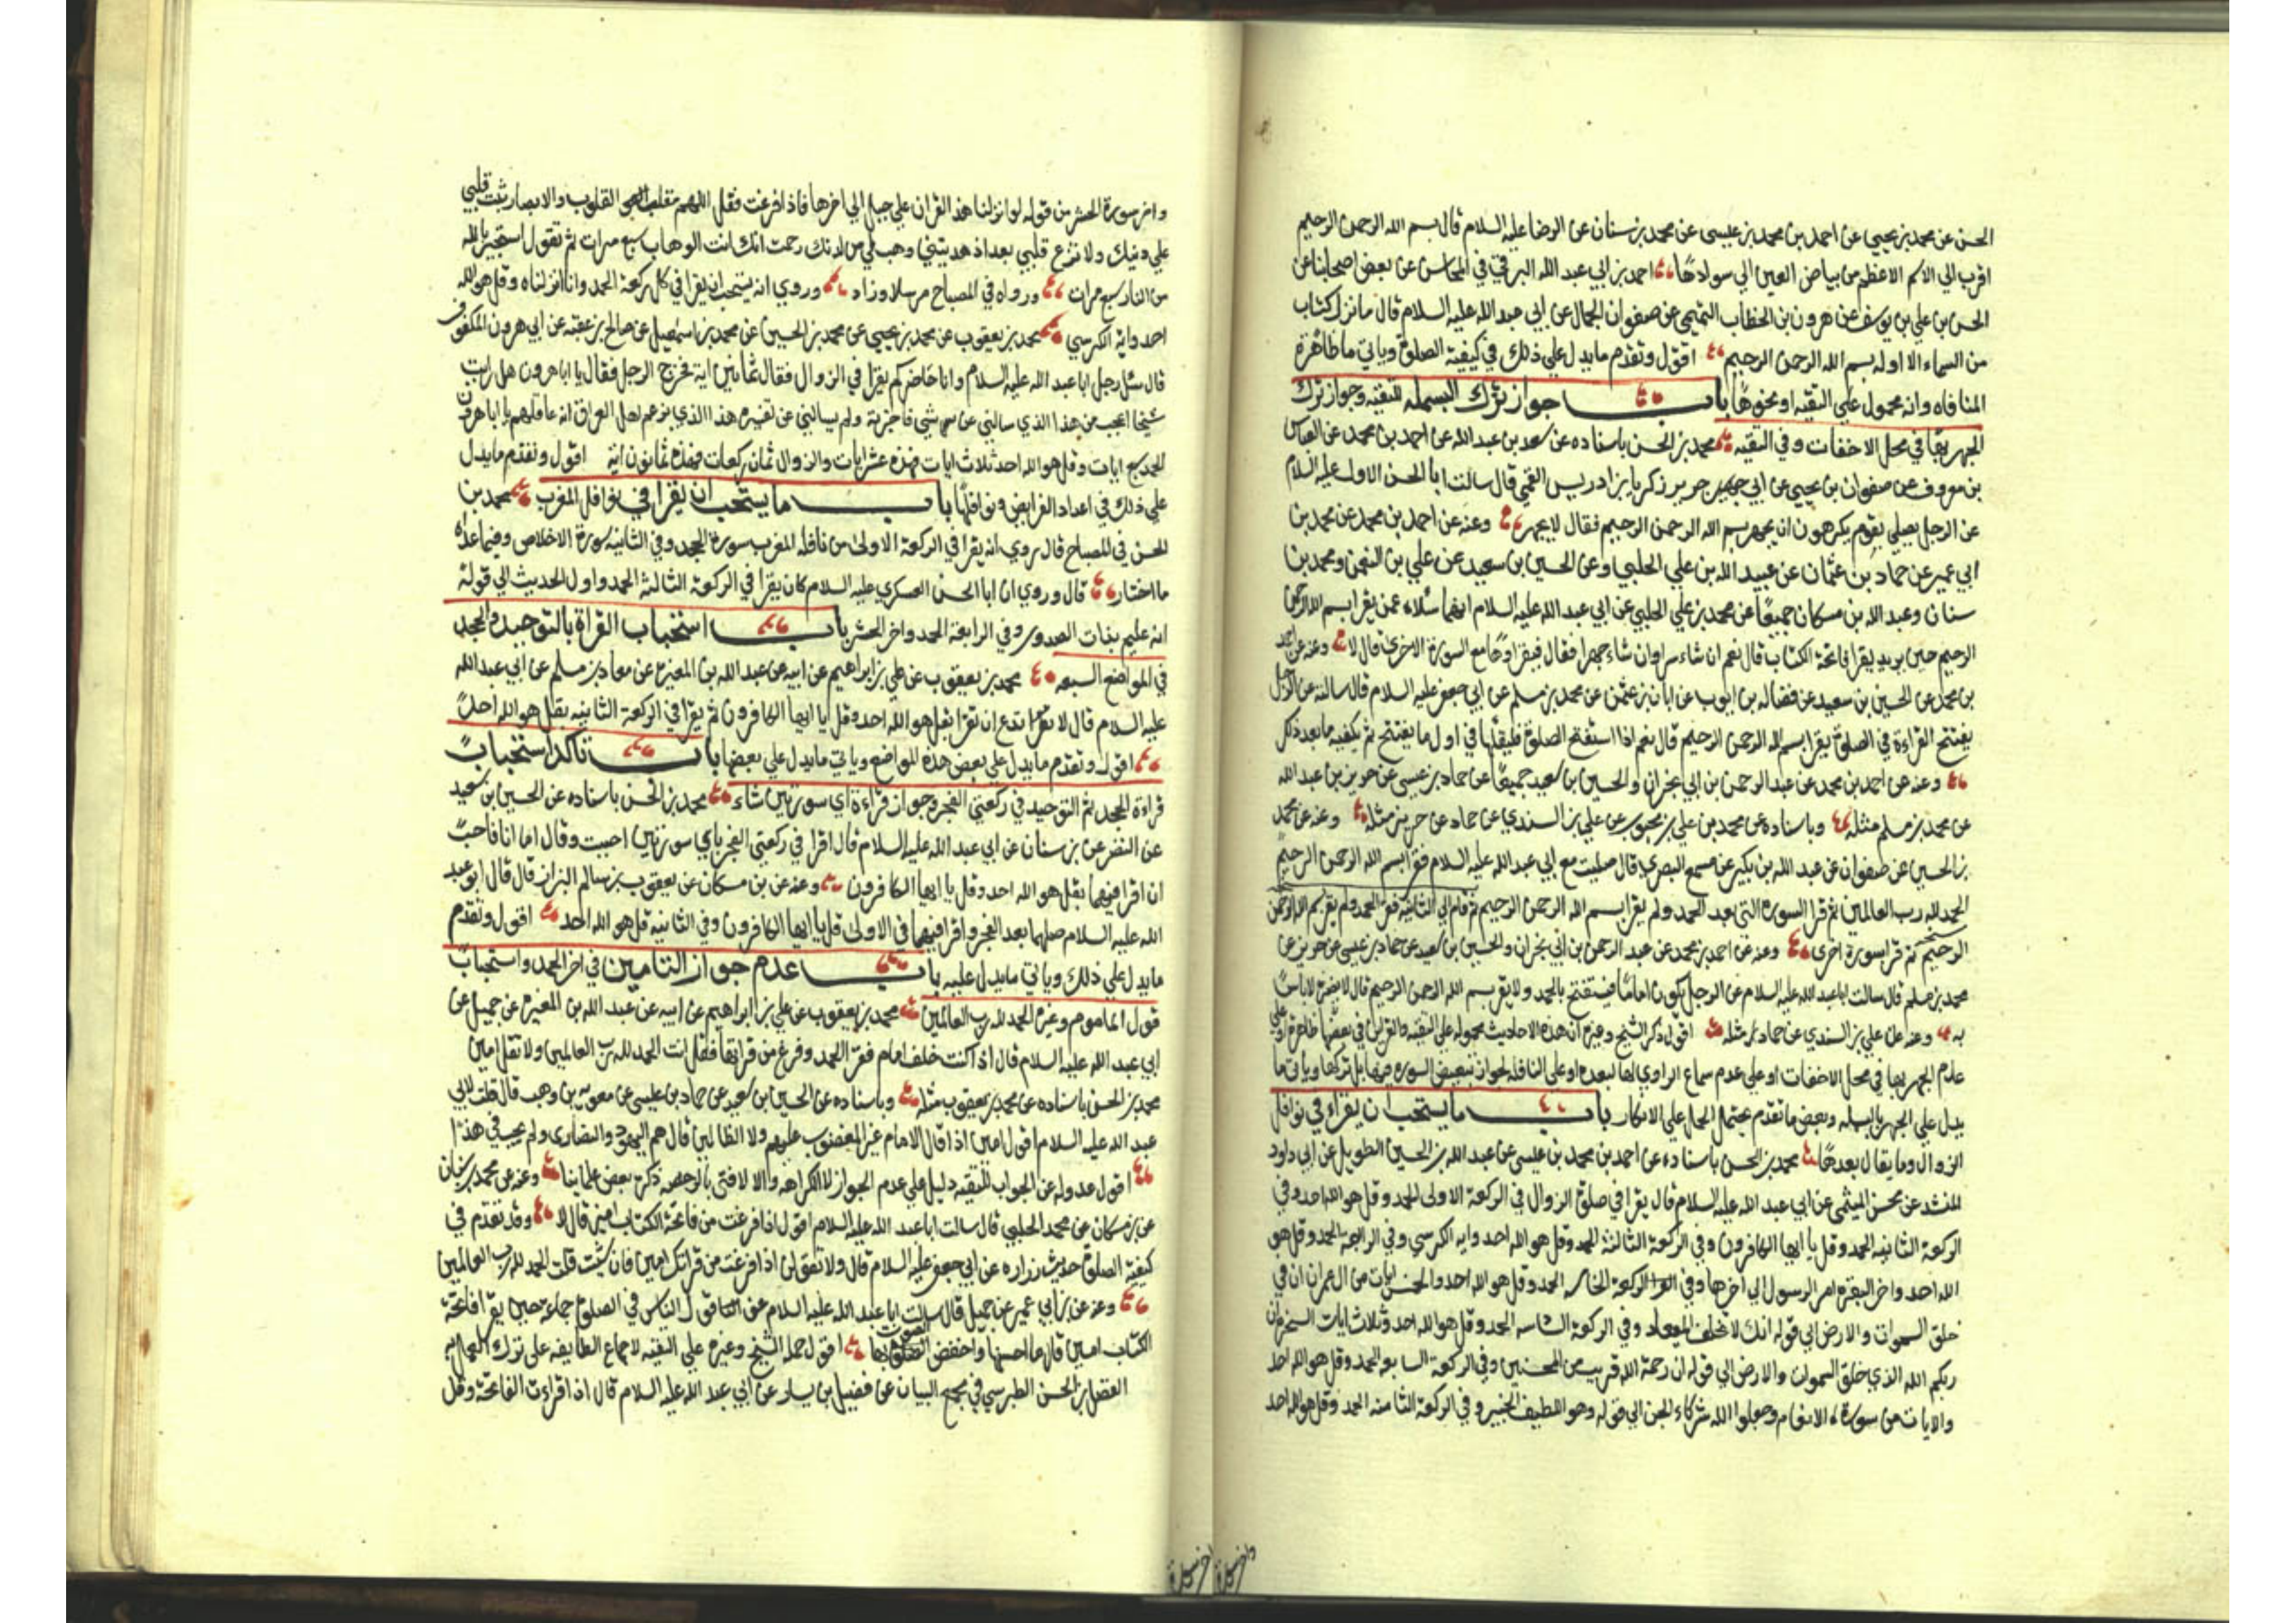 الحسن عن محمد بن يحيى عن احمد بن محمد بن عيسى عن محمد بن سنان عن الرضا عليه السلام قال بسم الله الرحمن الرحيم
اقرب الي الاسم الاعظم من بياض العين الي سوادها احمد بن ابي عبد الله البرقي في المحاسن عن بعض اصحابنا عن
الحسن بن علي بن يوسف عن هرون بن الخطاب التميمي عن صفوان الجمال عن ابي عبد الله عليه السلام قال ما نزل كتاب
من السماء الا اوله بسم الله الرحمن الرحيم اقول وتقدم ما يدل علي ذلك في كيفية الصلوة وياتي ما ظاهره
المنافاه وانه محمول علي التقيه او نحوها باب جواز ترك البسمله للتقيه وجواز ترك
الجهر بها في محل الاخفات وفي التقيه محمد بن الحسن باسناده عن سعد بن عبد الله عن احمد بن محمد عن العباس
بن معروف عن صفوان بن يحيى عن ابي جرير زكريا بن ادريس القمي قال سالت ابا الحسن الاول عليه السلام
عن الرجل يصلي بقوم يكرهون ان يجهر بسم الله الرحمن الرحيم فقال لا يجهر وعنه عن احمد بن محمد عن محمد بن
ابي عمير عن حماد بن عثمان عن عبيد الله بن علي الحلبي وعن الحسين بن سعيد عن علي بن النعمن ومحمد بن
سنان وعبد الله بن مسكان جميعا عن محمد بن علي الحلبي عن ابي عبد الله عليه السلام انهما سئلاه عمن يقرا بسم الله الرحمن
الرحيم حين يريد يقرا فاتحة الكتاب قال نعم ان شاء سرا وان شاء جهرا فقال فيقراوها مع السورة الاخرى قال لا وعنه عن احمد
بن محمد عن الحسين بن سعيد عن فضاله بن ايوب عن ابان بن عثمن عن محمد بن مسلم عن ابي جعفر عليه السلام قال سالته عن الرجل
يفتتح القراءة في الصلوة يقرا بسم الله الرحمن الرحيم قال نعم اذا استفتح الصلوة فليقلها في اول ما يفتتح ثم يكفيه ما بعد ذلك
وعنه عن احمد بن محمد عن عبد الرحمن بن ابي نجران والحسين بن سعيد جميعا عن حماد بن عيسى عن حريز بن عبد الله
عن محمد بن مسلم مثله وباسناده عن محمد بن علي بن محبوب عن علي بن السندي عن حماد عن حريز مثله وعنه عن محمد
بن الحسين عن صفوان عن عبد الله بن بكير عن مسمع البصري قال صليت مع ابي عبد الله عليه السلام فقرا بسم الله الرحمن الرحيم
الحمد لله رب العالمين ثم قرا السورة التي بعد الحمد ولم يقرا بسم الله الرحمن الرحيم ثم قام الي الثانيه فقرا الحمد ولم يقرا بسم الله الرحمن
الرحيم ثم قرا بسورة اخرى وعنه عن احمد بن محمد عن عبد الرحمن بن ابي نجران والحسين بن سعيد عن حماد بن عيسى عن حريز عن
محمد بن مسلم قال سالت ابا عبد الله عليه السلام عن الرجل يكون اماما فيستفتح بالحمد ولا يقرا بسم الله الرحمن الرحيم قال لا يضره لا باس
به وعنه عن علي بن السندي عن حماد مثله اقول ذكر الشيخ وغيره ان هذه الاحاديث محموله علي التقيه والقراين في بعضها ظاهرة او علي
عدم الجهر بها في محل الاخفات او علي عدم سماع الراوي لها لبعده او علي النافله لجواز تبعيض السورة فيها بل تركها وياتي ما
يدل علي الجهر بالبسمله وبعض ما تقدم يحتمل الحمل علي الانكار باب ما يستحب ان يقراء في نوافل
الزوال وما يقال بعدها محمد بن الحسن باسناده عن احمد بن محمد بن عيسى عن عبد الله بن الحسين الطويل عن ابي داود
المنشد عن محسن الميثمي عن ابي عبد الله عليه السلام قال يقرا في صلوة الزوال في الركعة الاولى الحمد وقل هو الله احد وفي
الركعة الثانيه الحمد وقل يا ايها الكافرون وفي الركعة الثالثة الحمد وقل هو الله احد وايه الكرسي وفي الرابعة الحمد وقل هو
الله احد واخر البقره امن الرسول الي اخرها وفي الركعة الخامسه الحمد وقل هو الله احد والخمس ايات من ال عمران ان في
خلق السموات والارض الي قوله انك لا تخلف الميعاد وفي الركعة السادسه الحمد وقل هو الله احد وثلاث ايات السخره ان
ربكم الله الذي خلق السموات والارض الي قوله ان رحمة الله قريب من المحسنين وفي الركعة السابعه الحمد وقل هو الله احد
والايات من سورة الانعام وجعلوا لله شركاء الجن الي قوله وهو اللطيف الخبير وفي الركعة الثامنه الحمد وقل هو الله احد
واخر سورة
واخر سورة الحشر من قوله لو انزلنا هذا القران علي جبل الي اخرها فاذا فرغت فقل اللهم مقلب القلوب والابصار ثبت قلبي
علي دينك ولا تزغ قلبي بعد اذ هديتني وهب لي من لدنك رحمت انك انت الوهاب سبع مرات ثم تقول استجير بالله
من النار سبع مرات ورواه في المصباح مرسلا وزاد وروي انه يستحب ان يقرا في كل ركعة الحمد وانا انزلناه وقل هو الله
احد واية الكرسي محمد بن يعقوب عن محمد بن يحيى عن محمد بن الحسين عن محمد بن اسمعيل عن صالح بن عقبه عن ابي هرون المكفوف
قال سئل رجل ابا عبد الله عليه السلام وانا حاضر كم يقرا في الزوال فقال ثمانين اية فخرج الرجل فقال يا ابا هرون هل رايت
شيخا اعجب من هذا الذي سالني عن شيء فاخبرته ولم يسالني عن تفسيره هذا الذي يزعم اهل العراق انه عاقلهم يا ابا هرون
الحمد سبع ايات وقل هو الله احد ثلاث ايات فهذه عشر ايات والزوال ثمان ركعات فهذه ثمانون اية اقول وتقدم ما يدل
علي ذلك في اعداد الفرايض ونوافلها باب ما يستحب ان يقرا في نوافل المغرب محمد بن
الحسن في المصباح قال روي انه يقرا في الركعة الاولى من نافله المغرب سورة الجحد وفي الثانيه سورة الاخلاص وفيما عداه
ما اختار قال وروي ان ابا الحسن العسكري عليه السلام كان يقرا في الركعة الثالثة الحمد واول الحديد الي قوله
انه عليم بذات الصدور وفي الرابعة الحمد واخر الحشر باب استحباب القراة بالتوحيد والجحد
في المواضع السبعه محمد بن يعقوب عن علي بن ابراهيم عن ابيه عن عبد الله بن المغيره عن معاذ بن مسلم عن ابي عبد الله
عليه السلام قال لا تدع ان تقرا بقل هو الله احد وقل يا ايها الكافرون ثم يقرا في الركعة الثانيه بقل هو الله احد
اقول وتقدم ما يدل علي بعض هذه المواضع وياتي ما يدل علي بعضها باب تاكد استحباب
قراءة الجحد ثم التوحيد في ركعتي الفجر وجواز قراءة اي سورتين شاء محمد بن الحسن باسناده عن الحسين بن سعيد
عن النضر عن بن سنان عن ابي عبد الله عليه السلام قال اقرا في ركعتي الفجر باي سورتين احببت وقال اما انا فاحب
ان اقرا فيهما بقل هو الله احد وقل يا ايها الكافرون وعنه عن بن مسكان عن يعقوب بن سالم البزاز قال قال ابو عبد
الله عليه السلام صلهما بعد الفجر واقرا فيهما في الاولى قل يا ايها الكافرون وفي الثانيه قل هو الله احد اقول وتقدم
ما يدل علي ذلك وياتي ما يدل عليه باب عدم جواز التامين في اخر الحمد واستحباب
قول الماموم وغيره الحمد لله رب العالمين محمد بن يعقوب عن علي بن ابراهيم عن ابيه عن عبد الله بن المغيره عن جميل عن
ابي عبد الله عليه السلام قال اذا كنت خلف امام فقرا الحمد وفرغ من قراتها فقل انت الحمد لله رب العالمين ولا تقل امين
محمد بن الحسن باسناده عن محمد بن يعقوب مثله وباسناده عن الحسين بن سعيد عن حماد بن عيسى عن معويه بن وهب قال قلت لابي
عبد الله عليه السلام اقول امين اذا قال الامام غير المغضوب عليهم ولا الظالين قال هم اليهود والنصارى ولم يجب في هذا
اقول عدوله عن الجواب للتقيه دليل علي عدم الجواز لا الكراهه والا لافتى بالرخصه ذكره بعض علماينا وعنه عن محمد بن سنان
عن بن مسكان عن محمد الحلبي قال سالت ابا عبد الله عليه السلام اقول اذا فرغت من فاتحة الكتاب امين قال لا وقد تقدم في
كيفية الصلوة حديث زراره عن ابي جعفر عليه السلام قال ولا تقولن اذا فرغت من قراتك امين فان شئت قلت الحمد لله رب العالمين
وعنه عن بن ابي عمير عن جميل قال سالت ابا عبد الله عليه السلام عن قول الناس في الصلوة جماعة حين يقرا فاتحة
الكتاب امين قال ما احسنها واخفض الصوت بها اقول حمله الشيخ وغيره علي التقيه لاجماع الطايفه على ترك العمل به
الفضل بن الحسن الطبرسي في مجمع البيان عن فضيل بن يسار عن ابي عبد الله عليه السلام قال اذا قراءت الفاتحة وقل